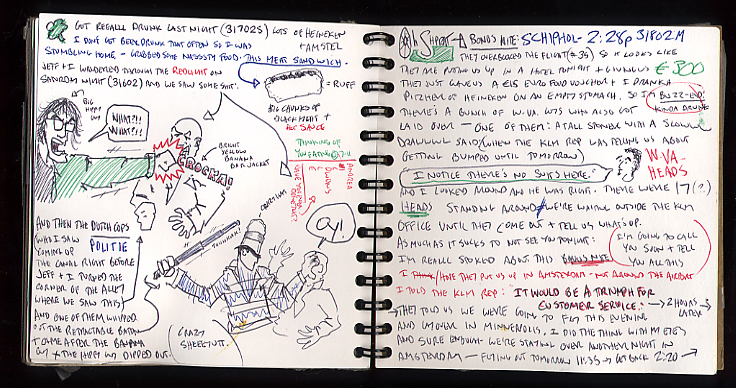 GOT REGALL DRUNK LAST NIGHT (31702S) LOTS OF HEINEKEN
+ AMSTEL
I DON'T GET BEER DRUNK THAT OFTEN SO I WAS
STUMBLING HOME - GRABBED SHE NASSSTY FOOD. THIS MEAT SANDWICH.
JEFF + I WANDERED THROUGH THE REDLIGHT ON
SATURDM NIGHT (31602) AND WE SAW SOME SHIT.
= RUFF
BIG CHUNKS OF
BLACK MEAT +
HOT SAUCE
BIG
HIPPY
GUY
WHAT?!!
WHAT?!!
CROCKA!
BRIGHT
YELLOW
BANANA
REPUBJACKET
THINKING OF
CRAZY HAT
OY!
AND THEN THE DUTCH COPS
WHO I SAW POLITIE
COMING UP
THE CANAL RIGHT BEFORE
JEFF + I TURNED THE
CORNER OF THE ALLEY
WHERE WE SAW THIS
AND ONE OF THEM WHIPPED
OUT THE RETRACTABLE BATON
+ CAME AFTER THE BANANA
GUY + THE HIPPY WE DIPPED OUT.
CRAZY
SHEEETUTT.
BONUS NITE: SCHIPHOL - 2:28P 31802M
THEY OVERBOOKED THE FLIGHT (+35) SO IT LOOKS LIKE
THEY ARE PUTTING US UP IN A HOTEL TONIGHT + GIVING US €300
THEY JUST GAVE US A €15 EURO FOOD VOUCHER + I DRANK A
PITCHER OF HEINEKEN ON AN EMPTY STOMACH, SO I'M BUZZ-END!
KINDA DRUNK
THERE'S A BUNCH OF W-VA GUYS WHO ALSO GOT
LAID OVER - ONE OF THEM: A TALL STONER WITH A SLOWWW
DRAWWWL SAID (WHEN THE KLM REP WAS TELLING US ABOUT
GETTING BUMPED UNTIL TOMORROW)
I NOTICE THERE'S NO SUITS HERE.
W-VA-
HEADS
AND I LOOKED AROUND AND HE WAS RIGHT. THERE WERE 17 (?)
HEADS STANDING AROUND. WE'RE WAITING OUTSIDE THE KLM
OFFICE UNTIL THEY COME OUT + TELL US WHAT'S UP.
AS MUCH AS IT SUCKS TO NOT SEE YOU TONIGHT:
I'M REALL STOKED ABOUT THIS BONUS NITE
I'M GOING TO CALL
YOU SOON + TELL
YOU ALL THIS
I HOPE THEY PUT US UP IN AMSTERDAM - NOT AROUND THE AIRPORT
I TOLD THE KLM REP: "IT WOULD BE A TRIUMPH FOR
CUSTOMER SERVICE." → 2 HOURS
LATER
→ THEY TOLD US WE WERE GOING TO FLY THIS EVENING
AND LAYOVER IN MINNEAPOLIS, I DID THE THING WITH M EYES
AND SURE ENOUGH - WE'RE STAYING OVER ANOTHER NIGHT IN
AMSTERDAM - FLYING OUT TOMORROW 11:35 → GET BACK 2:20 →